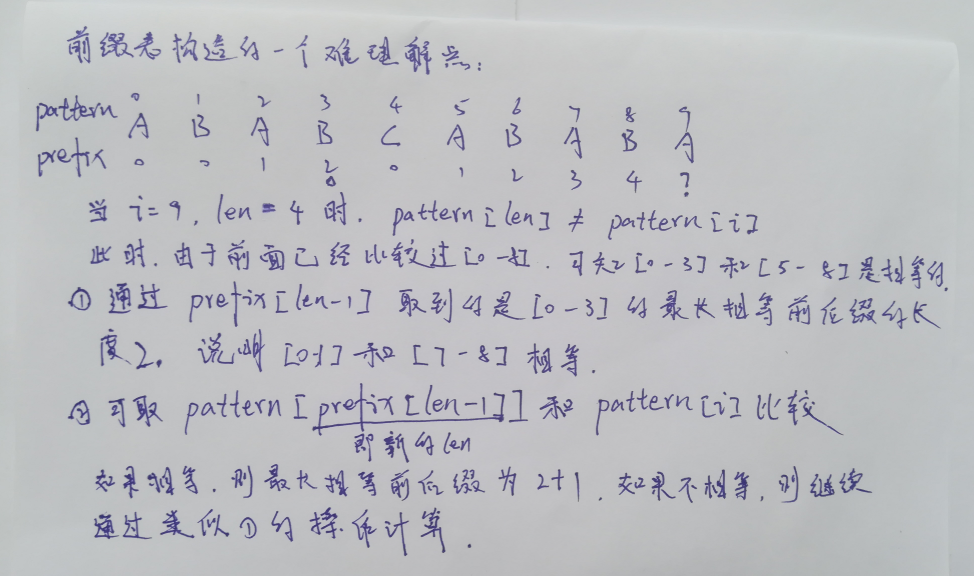 前缀表构造的一个难理解点:
0 1 2 3 4 5 6 7 8 9
pattern A B A B C A B A B A
prefix 0 0 1 2 0 1 2 3 4 ?
当 i=9, len=4 时. pattern[len] ≠ pattern[i]
此时. 由于前面已经比较过[0-8]. 可知[0-3]和[5-8]是相等的.
① 通过 prefix[len-1] 取到的是[0-3]的最长相等前后缀的长
度2. 说明[0-1]和[7-8]相等.
② 可取 pattern[prefix[len-1]] 和 pattern[i] 比较
即新的len
如果相等. 则最长相等前后缀为 2+1. 如果不相等, 则继续
通过类似①的操作计算.